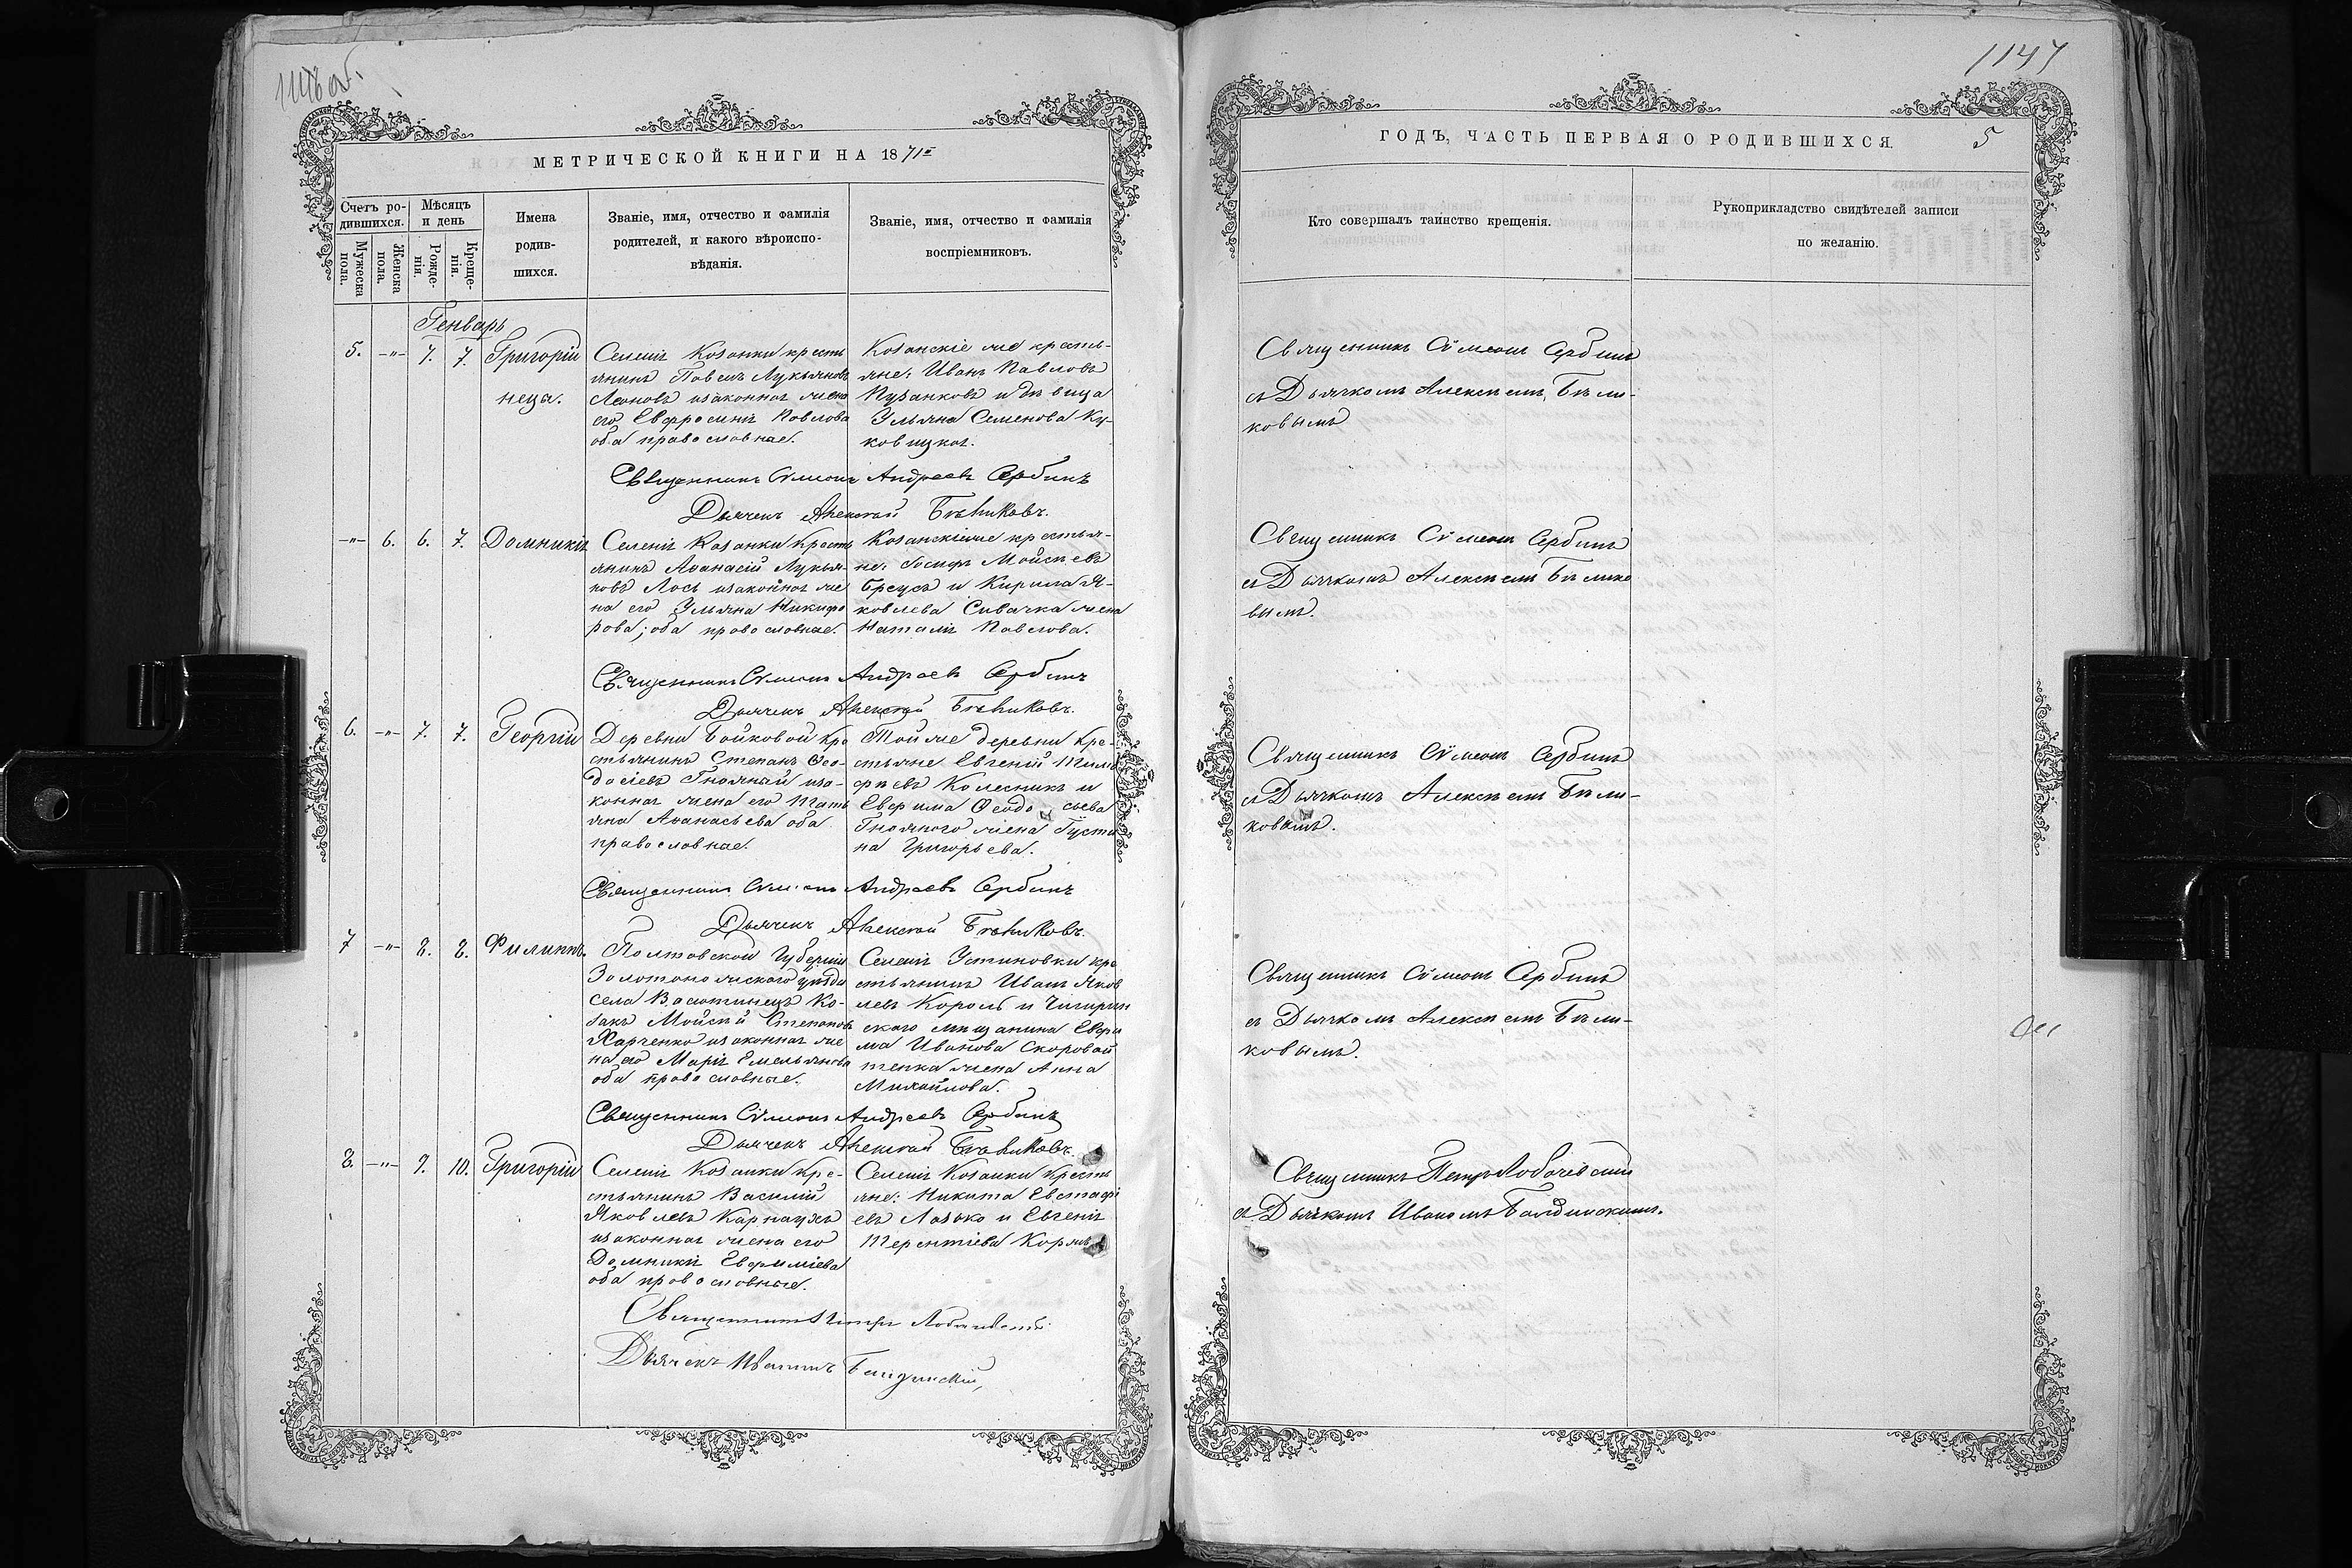 1147
МЕТРИЧЕСКОЙ КНИГИ НА 1871
Счетъ ро-
дившихся.
Мѣсяцъ
и день
Мужеска
пола.
Женска
пола.
Рожде-
нія.
Креще-
нія.
Имена
родив-
шихся.
Званіе, имя, отчество и фамилія
родителей, и какого вѣроиспо-
вѣданія.
Званіе, имя, отчество и фамилія
воспріемниковъ.
Генварь
5. -"- 7. 7. Григорій
неца.
Селенія Козанки кресть
янинъ Павелъ Лукьяновъ
Леоновъ изаконная жена
его Евфросинія Павлова
оба православные.
Козанскіе же кресть-
яне: Иванъ Павловъ
Кузанковъ и дѣвица
Ульяна Семенова Ку-
ковицкая.
Священникъ Симеонъ Андреевъ Сербинъ
Дьячекъ Алексѣй Бѣликовъ.
-"- 6. 6. 7. Домникія
Селенія Козанки кресть
янинъ Аѳанасій Лукья-
новъ Лось изаконная же
на его Ульяна Никифо
рова; оба православные.
Козанскіеже крестья-
не: Іосифъ Мойсѣевъ
Бреусъ и Кирила Я-
ковлева Сивачка жена
Наталія Павлова.
Священникъ Симеонъ Андреевъ Сербинъ
Дьячекъ Алексѣй Бѣликовъ.
6. -"- 7. 7. Георгій
Деревни Бойковой кре
стьянинъ Степанъ Ѳео-
досіевъ Гнояный иза-
конная жена его Тать
яна Аѳанасьева оба
православные.
Той же деревни кре-
стьяне Евгеній Тимо
фѣевъ Колесникъ и
Ефима Ѳеодосьева
Гнояного жена Густи
на Григорьева.
Священникъ Симеонъ Андреевъ Сербинъ
Дьячекъ Алексѣй Бѣликовъ.
7 -"- 8. 8. Филиппъ.
Полтовской Губерніи
Золотоножскаго уѣзда
села Васютинецъ Ко-
закъ Мойсѣй Степановъ
Харченко изаконная же
на его Марія Емельянова
оба православные.
Селенія Устиновки кре
стьянинъ Иванъ Яков
левъ Король и Чигирин
скаго мищанина Ефи
ма Иванова Скоровай
тенка жена Анна
Михайлова.
Священникъ Симеонъ Андреевъ Сербинъ
Дьячекъ Алексѣй Бѣликовъ.
8. -"- 9. 10. Григорій
Селенія Козанки кре-
стьянинъ Василій
Яковлевъ Карнаухъ
изаконная жена его
Домникія Евфиміева
оба православные.
Селенія Козанки кресть
яне: Никита Евстафі
евъ Лазько и Евгенія
Терентіева
Священникъ Петръ Лобачевскій
Дьячекъ Иванъ
ГОДЪ, ЧАСТЬ ПЕРВАЯ О РОДИВШИХСЯ. 5
Кто совершалъ таинство крещенія.
Рукоприкладство свидѣтелей записи
по желанію.
Священникъ Симеонъ Сербинъ
съ Дьячкомъ Алексѣемъ Бѣли-
ковымъ
Священникъ Симеонъ Сербинъ
съ Дьячкомъ Алексѣемъ Бѣлико
вымъ.
Священникъ Симеонъ Сербинъ
съ Дьячкомъ Алексѣемъ Бѣли-
ковымъ.
Священникъ Симеонъ Сербинъ
съ Дьячкомъ Алексѣемъ Бѣли-
ковымъ.
Священникъ Петръ Лобачевскій
съ Дьячкомъ Иваномъ